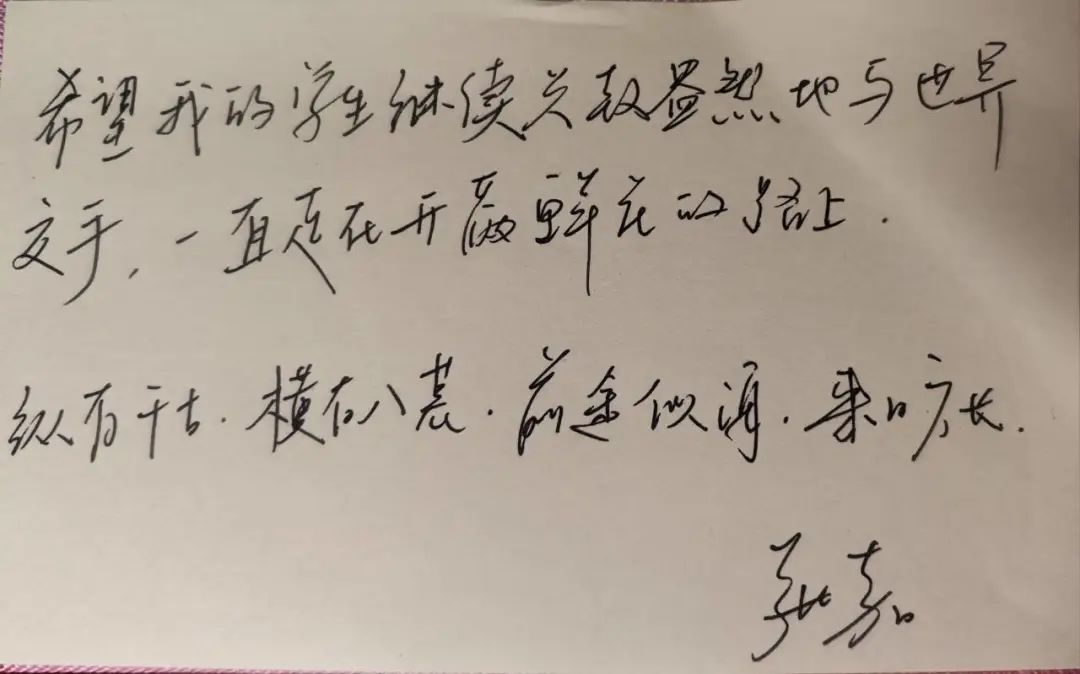 希望我的学生继续兴致盎然地与世界
交手,一直走在开满鲜花的路上.
纵有千古.横有八荒.前途似海.来日方长.
张嘉